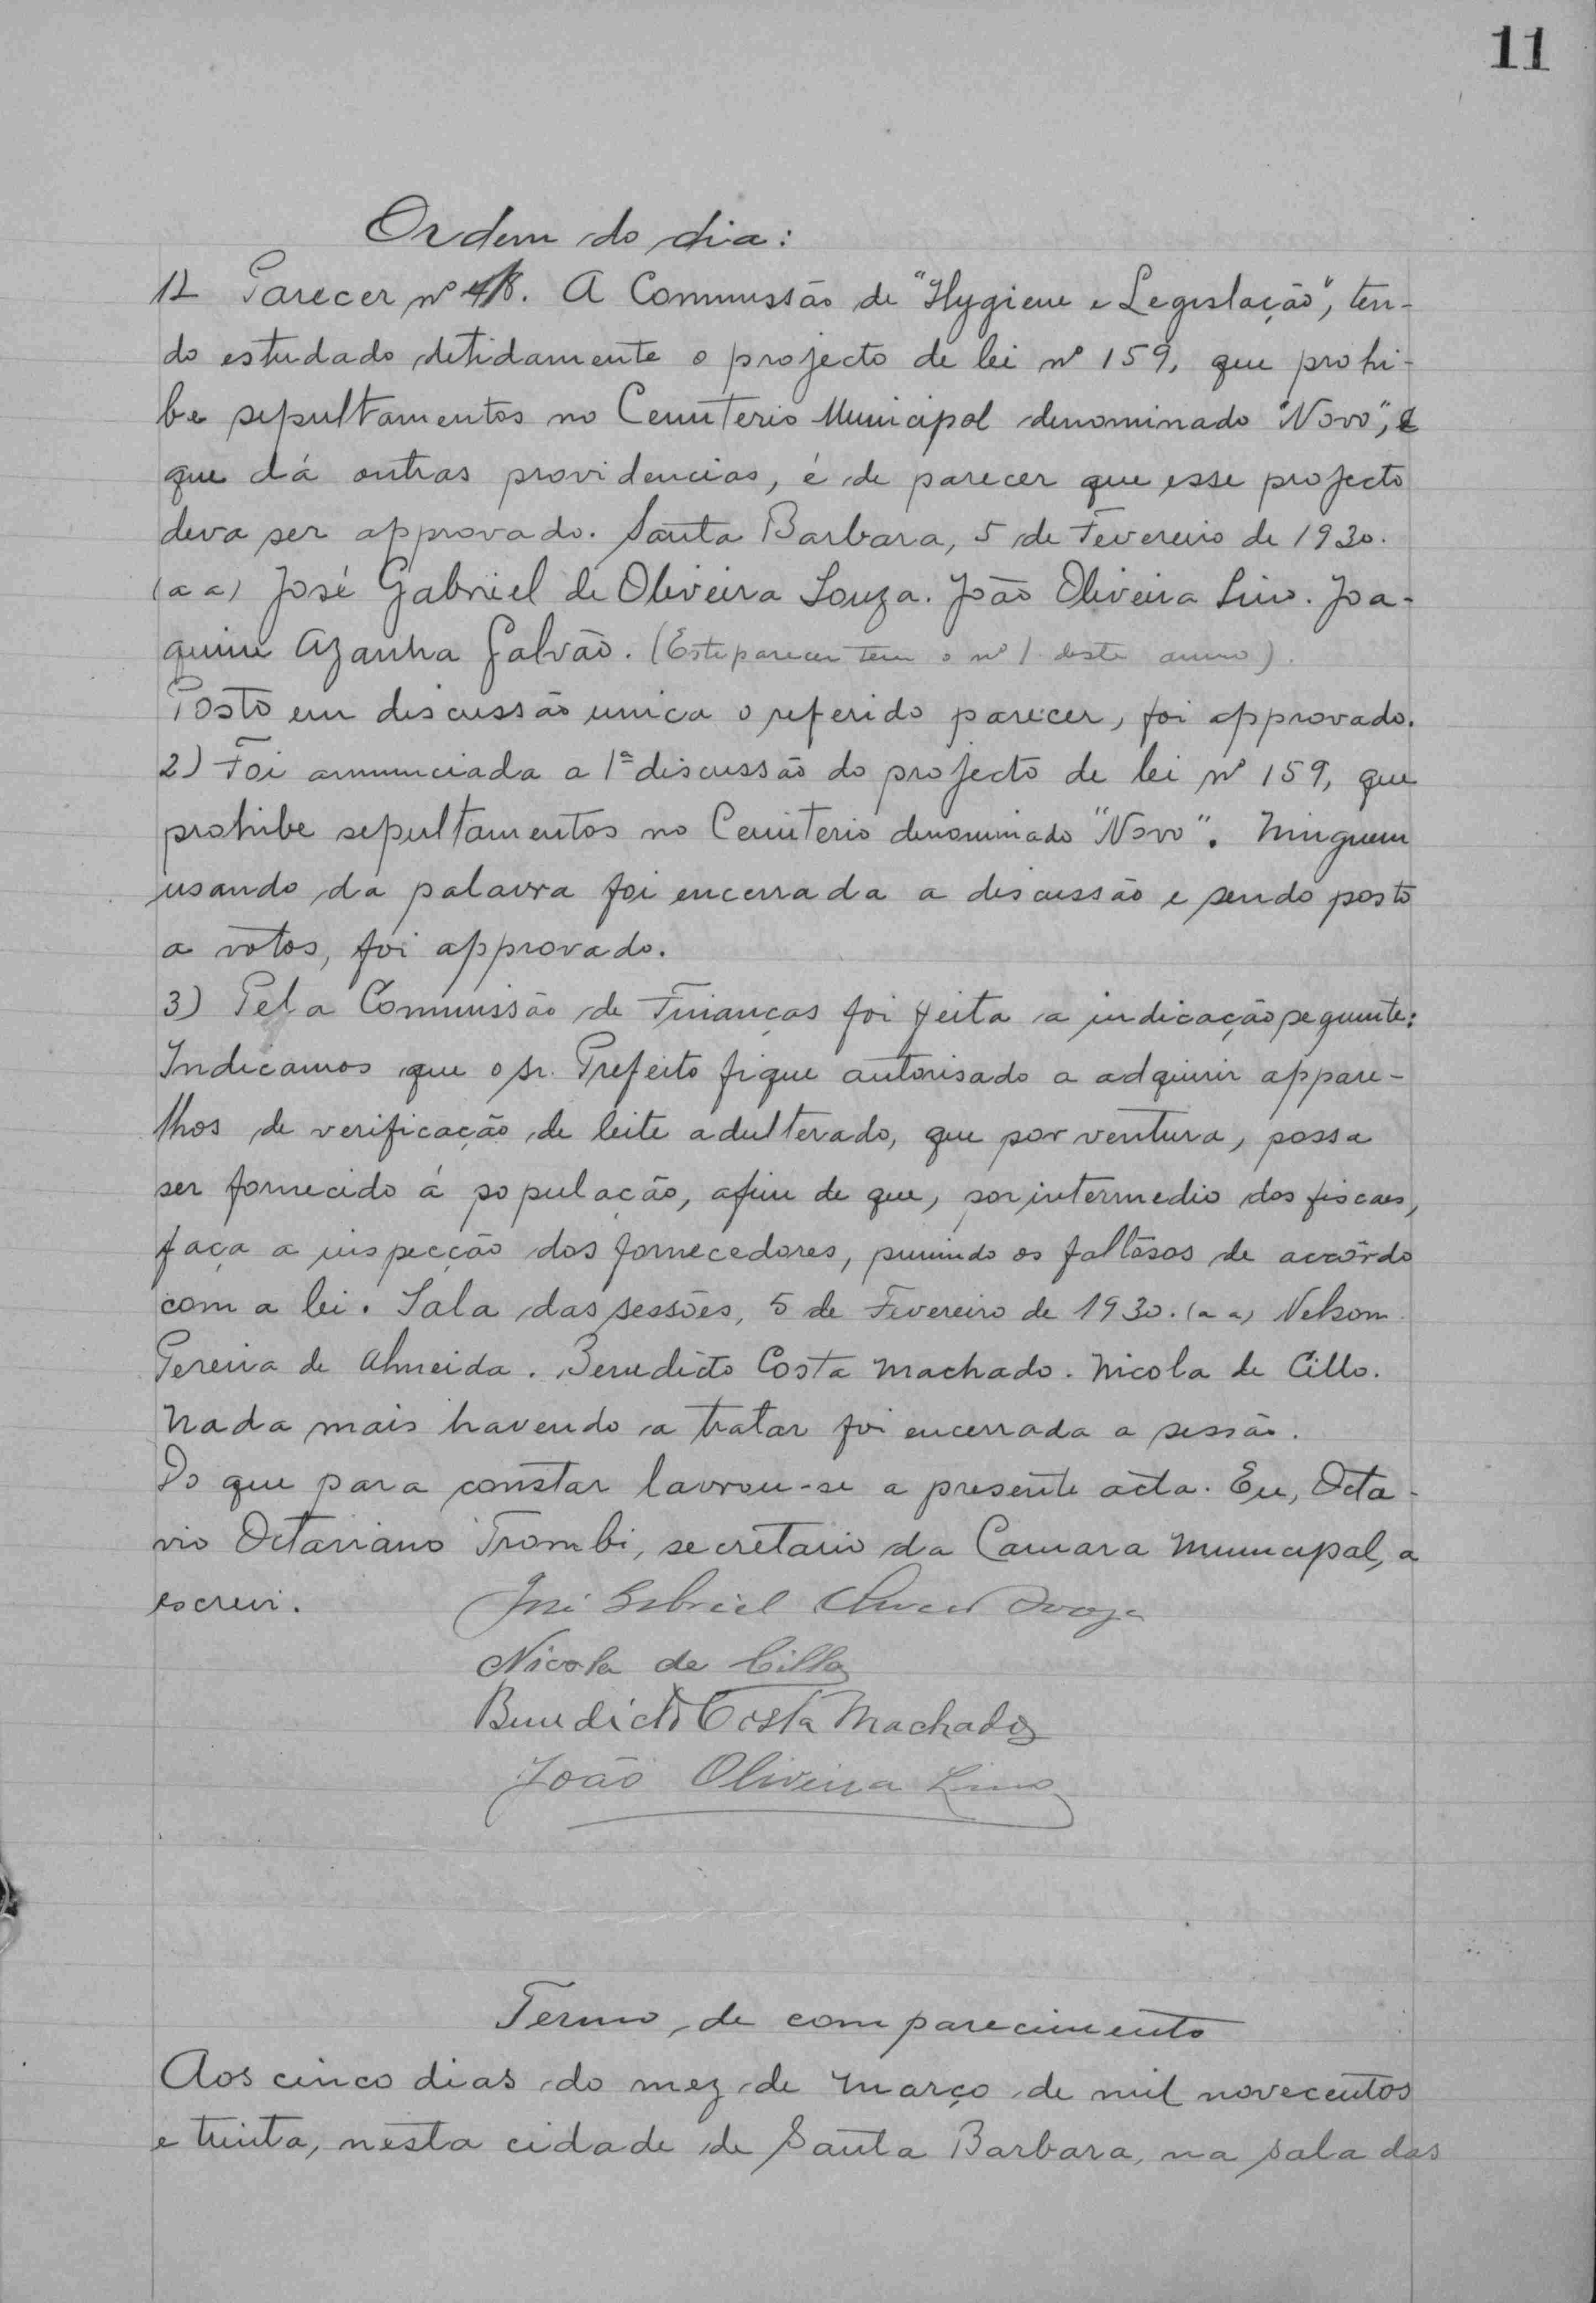 11
Ordem do dia:
1) Parecer nº 48. A Commissão de "Hygiene e Legislação", ten-
do estudado detidamente o projecto de lei nº 159, que prohi-
be sepultamentos no Cemiterio Municipal denominado "Novo", e
que dá outras providencias, é de parecer que esse projecto
deva ser approvado. Santa Barbara, 5 de Fevereiro de 1930.
(a a) José Gabriel de Oliveira Souza. João Oliveira Lino. Joa-
quim Azanha Galvão. (Este parecer tem o nº 1 deste anno).
Posto em discussão unica o referido parecer, foi approvado.
2) Foi annunciada a 1ª discussão do projecto de lei nº 159, que
prohibe sepultamentos no Cemiterio denominado "Novo". Ninguem
usando da palavra foi encerrada a discussão e sendo posto
a votos, foi approvado.
3) Pela Commissão de Finanças foi feita a indicação seguinte:
Indicamos que o sr. Prefeito fique autorisado a adquirir appare-
lhos de verificação de leite adulterado, que por ventura, possa
ser fornecido á população, afim de que, por intermedio dos fiscaes,
faça a inspecção dos fornecedores, punindo os faltosos de accôrdo
com a lei. Sala das sessões, 5 de Fevereiro de 1930. (a a) Nelson
Pereira de Almeida. Benedicto Costa Machado. Nicola de Cillo.
Nada mais havendo a tratar foi encerrada a sessão.
Do que para constar lavrou-se a presente acta. Eu, Octa-
vio Octaviano Trombi, secretario da Camara Municipal, a
escrevi.
José Gabriel Oliveira Souza
Nicola de Cillo
Benedicto Costa Machado
João Oliveira Lino
Termo de comparecimento
Aos cinco dias do mez de Março de mil novecentos
e trinta, nesta cidade de Santa Barbara, na sala das